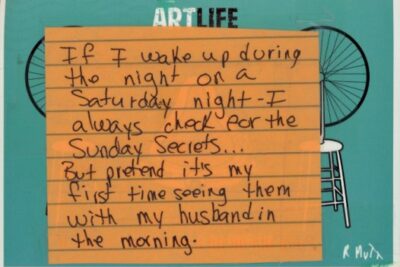 ARTLIFE
If I wake up during
the night on a
Saturday night - I
always check for the
Sunday Secrets...
But pretend it's my
first time seeing them
with my husband in
the morning.
R Mutt